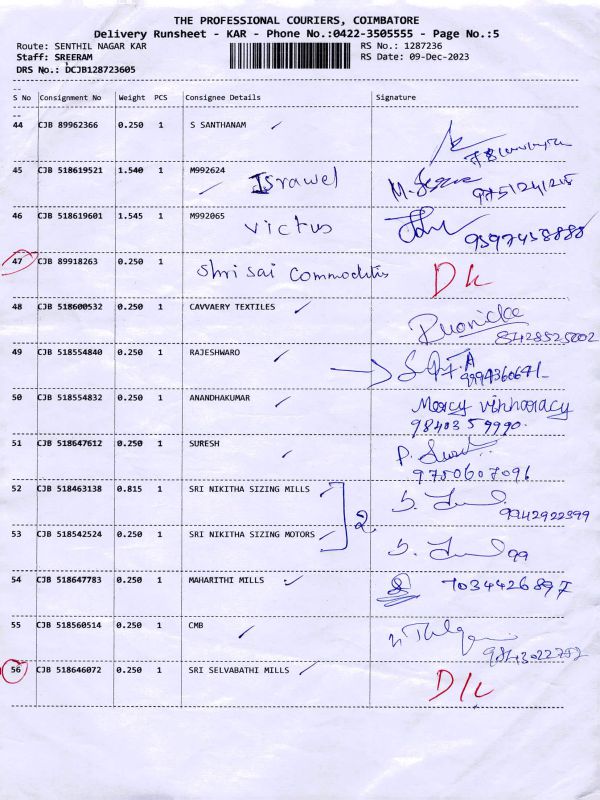 THE PROFESSIONAL COURIERS, COIMBATORE
Delivery Runsheet - KAR - Phone No.:0422-3505555 - Page No.:5
Route: SENTHIL NAGAR KAR RS No.: 1287236
Staff: SREERAM RS Date: 09-Dec-2023
DRS No.: DCJB128723605
S No Consignment No Weight PCS Consignee Details Signature
44 CJB 89962366 0.250 1 S SANTHANAM
45 CJB 518619521 1.540 1 M992624
Israwel
9751241215
46 CJB 518619601 1.545 1 M992065
victus
9597458888
47 CJB 89918263 0.250 1
Shri sai Commodities D/L
48 CJB 518600532 0.250 1 CAVVAERY TEXTILES
8428525002
49 CJB 518554840 0.250 1 RAJESHWARO
50 CJB 518554832 0.250 1 ANANDHAKUMAR Mercy
9840359990.
51 CJB 518647612 0.250 1 SURESH
9750607096
52 CJB 518463138 0.815 1 SRI NIKITHA SIZING MILLS
2
9942922399
53 CJB 518542524 0.250 1 SRI NIKITHA SIZING MOTORS
99
54 CJB 518647783 0.250 1 MAHARITHI MILLS 7034426897
55 CJB 518560514 0.250 1 CMB
9843022752
56 CJB 518646072 0.250 1 SRI SELVABATHI MILLS
D/L